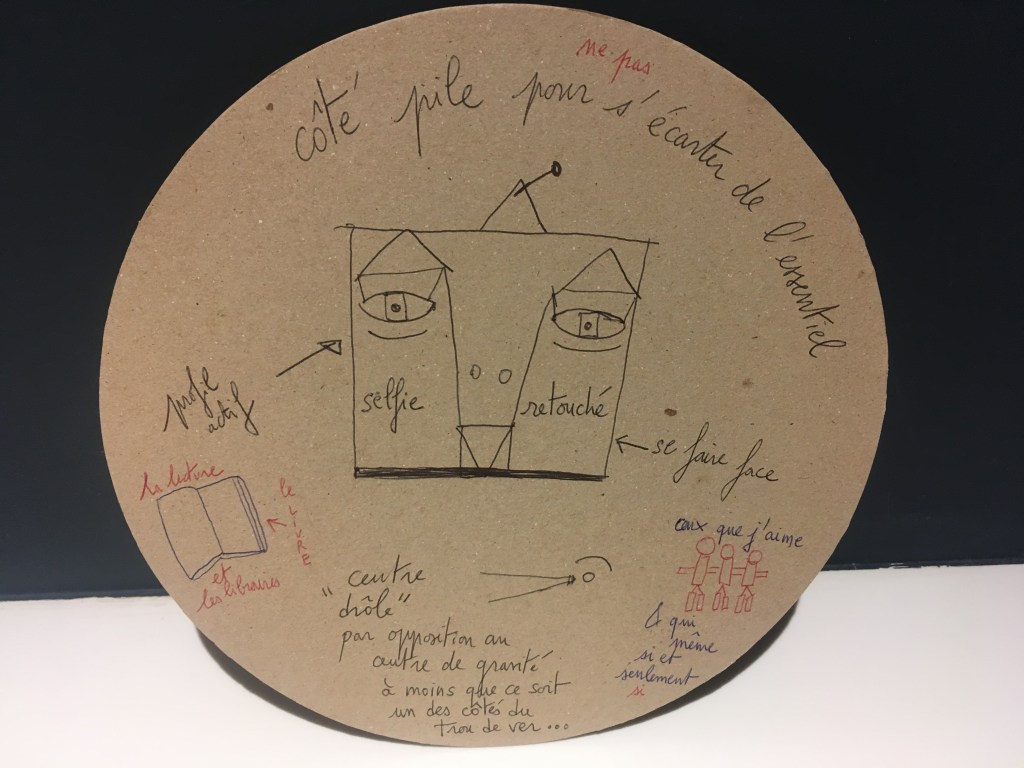 côté pile pour ne pas s'écarter de l'essentiel
profil
actif
selfie
retouché
se faire face
la lecture
le LIVRE
et
les libraires
"centre
drôle"
par opposition au
centre de gravité
à moins que ce soit
un des côtés du
trou de ver...
ceux que j'aime
même
si et
seulement
si